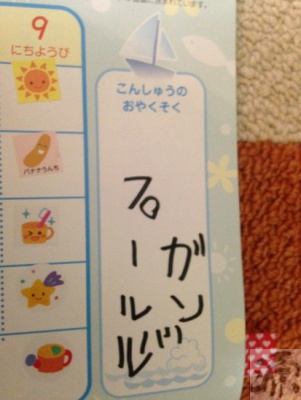 9
にちようび
バナナうんち
こんしゅうの
おやくそく
プール
ガン